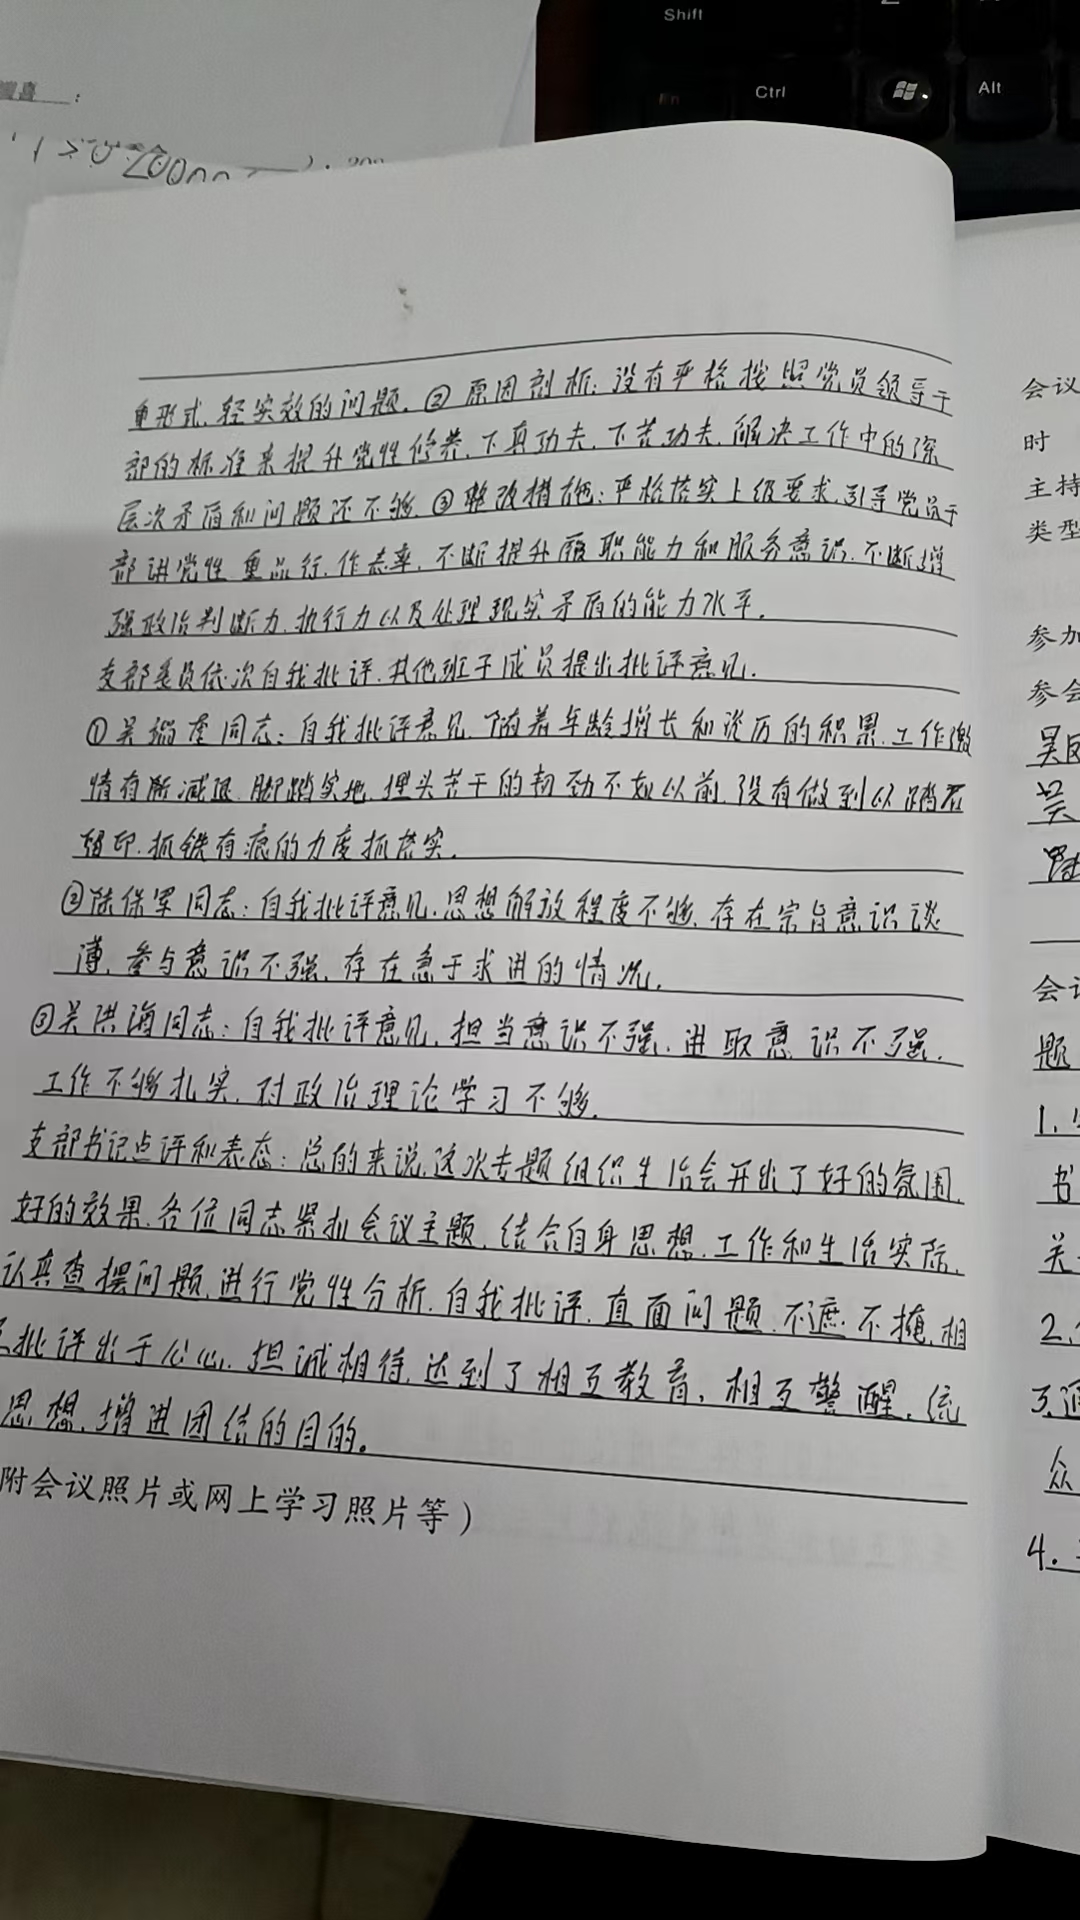 Shift
Ctrl
Alt
重形式、轻实效的问题。②原因剖析：没有严格按照党员领导干
部的标准来提升党性修养，下真功夫、下苦功夫，解决工作中的深
层次矛盾和问题还不够。③整改措施：严格落实上级要求，引导党员干
部讲党性、重品行、作表率，不断提升履职能力和服务意识，不断增
强政治判断力、执行力以及处理现实矛盾的能力水平。
支部委员依次自我批评，其他班子成员提出批评意见。
①吴瑞奎同志：自我批评意见，随着年龄增长和资历的积累，工作激
情有所减退，脚踏实地、埋头苦干的韧劲不如以前，没有做到以踏石
留印、抓铁有痕的力度抓落实。
②陆保军同志：自我批评意见，思想解放程度不够，存在宗旨意识谈
薄，参与意识不强，存在急于求进的情况。
③吴洪海同志：自我批评意见，担当意识不强，进取意识不强，
工作不够扎实，对政治理论学习不够。
支部书记点评和表态：总的来说，这次专题组织生活会开出了好的氛围，
好的效果，各位同志紧扣会议主题，结合自身思想、工作和生活实际，
认真查摆问题，进行党性分析，自我批评，直面问题，不遮不掩，相
互批评出于公心，坦诚相待，达到了相互教育，相互警醒，统
思想，增进团结的目的。
附会议照片或网上学习照片等）
会议
时
主持
类型
参加
参会
吴
会议
题
1.
书
关
2.
3.通
众
4.